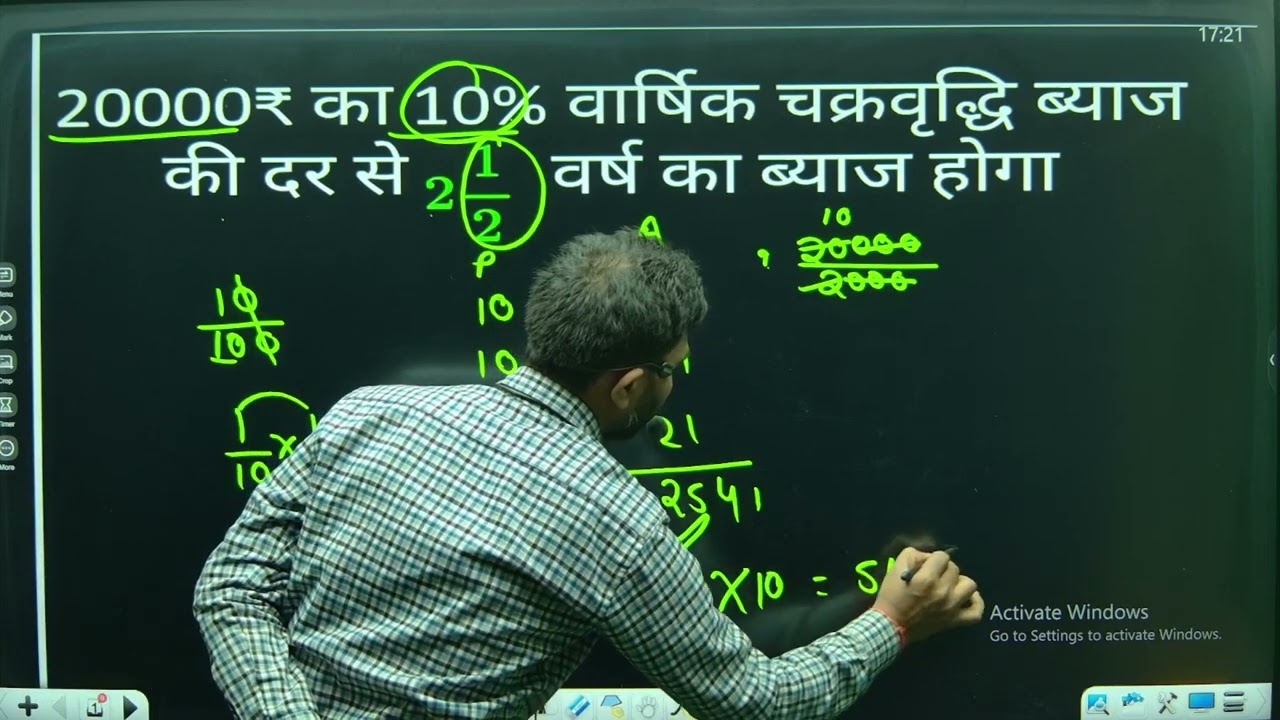 17:21
20000₹ का 10% वार्षिक चक्रवृद्धि ब्याज
की दर से 2 1/2 वर्ष का ब्याज होगा
P A
10
20000
2000
10
100
10
10
1
10 ×
21
2541
×10 = 5
Activate Windows
Go to Settings to activate Windows.
Menu
Mark
Crop
Timer
More
1